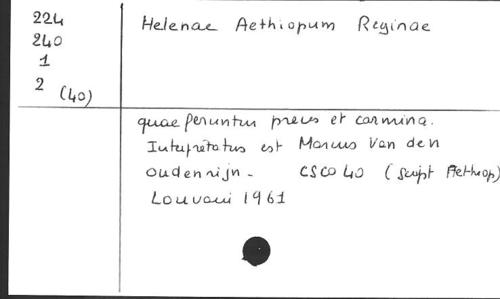 224
240
1
2 (40)
Helenae Aethiopum Reginae
quae feruntur preces et carmina.
Interpretatus est Marcus Van den
Oudenrijn - CSCO 40 (Script Aethiop)
Louvani 1961